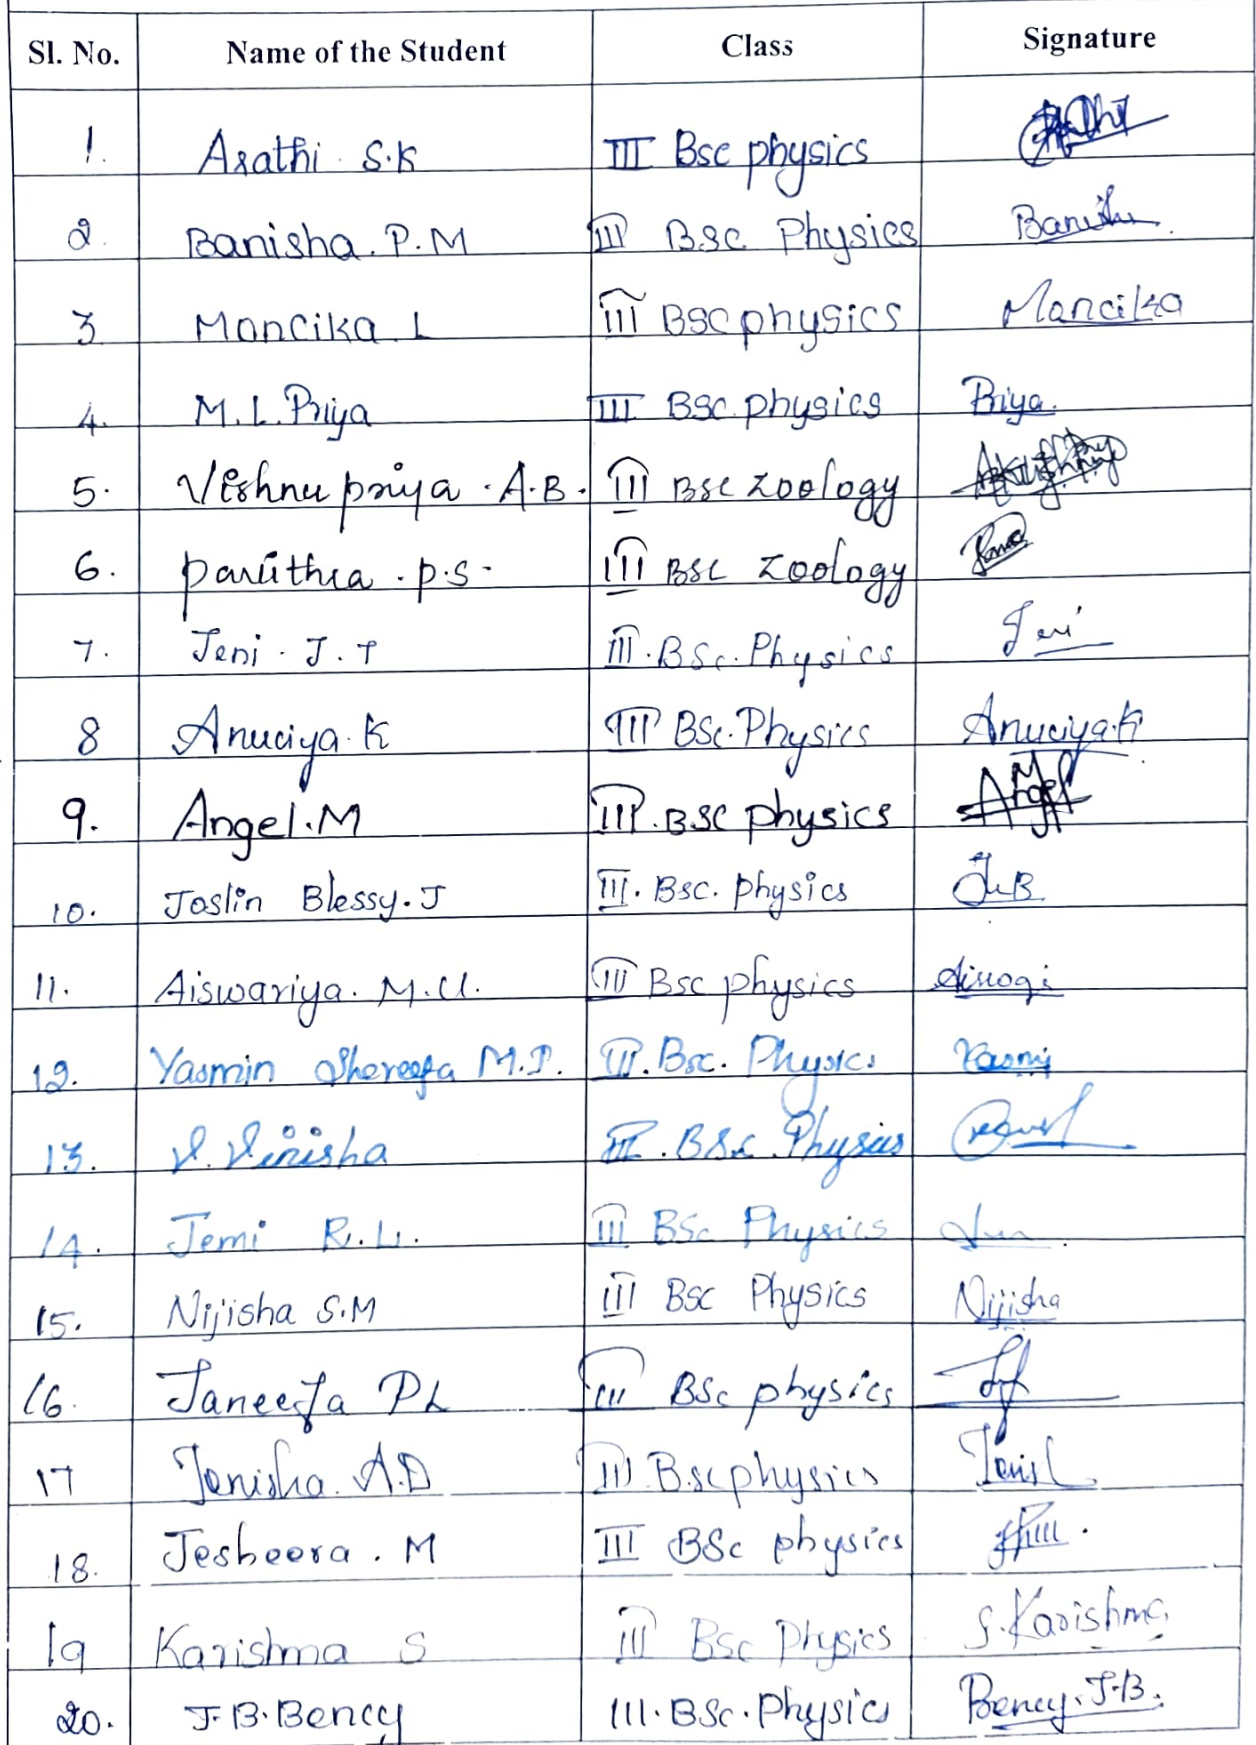 Sl. No. Name of the Student Class Signature
1. Arathi S.K III Bsc physics
2. Banisha. P.M III B.sc Physics Banisha
3 Moncika L III BSC physics Moncika
4. M.L.Priya III BSC physics Priya.
5. Vishnu priya . A.B. III BSC Zoology
6. paruthra . p.s. III BSC Zoology
7. Jeni . J. T III. BSc. Physics Jeni
8 Anuciya. K III BSc. Physics Anuciya.K
9. Angel.M III. BSC physics Angel M
10. Joslin Blessy. J III. BSC. physics
11. Aiswariya. M.U. III Bsc physics
12. Yasmin Shereefa M.I. III. Bsc. Physics Yasmi
13. V. Vinisha III. BSc Physics
14. Jemi R.L. III BSc Physics
15. Nijisha S.M III BSC Physics Nijisha
16. Janeefa PL III BSc physics
17 Jenisha. A.D III B.sc physics Jenish
18. Jesheera. M III BSc physics
19 Karishma S III BSc Physics S. Karishma
20. J.B.Bency III. BSc. Physics Bency. J.B.